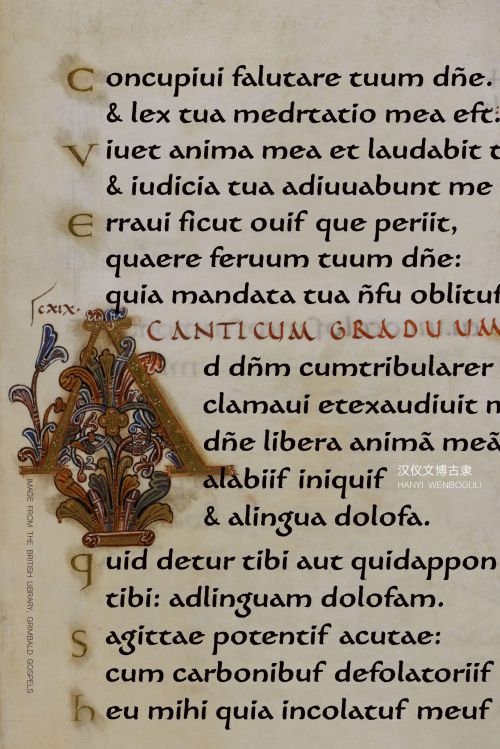 Concupiui falutare tuum dñe.
& lex tua medrtatio mea eft.
Viuet anima mea et laudabit t
& iudicia tua adiuuabunt me
Erraui ficut ouif que periit,
quaere feruum tuum dñe:
quia mandata tua ñfu oblituf
cxix.
CANTICUM GRADUUM
Ad dñm cumtribularer
clamaui etexaudiuit m
dñe libera animã meã
alabiif iniquif
汉仪文博古隶
HANYI WENBOGULI
& alingua dolofa.
quid detur tibi aut quidappon
tibi: adlinguam dolofam.
sagittae potentif acutae:
cum carbonibuf defolatoriif
heu mihi quia incolatuf meuf
IMAGE FROM THE BRITISH LIBRARY, GRIMBALD GOSPELS